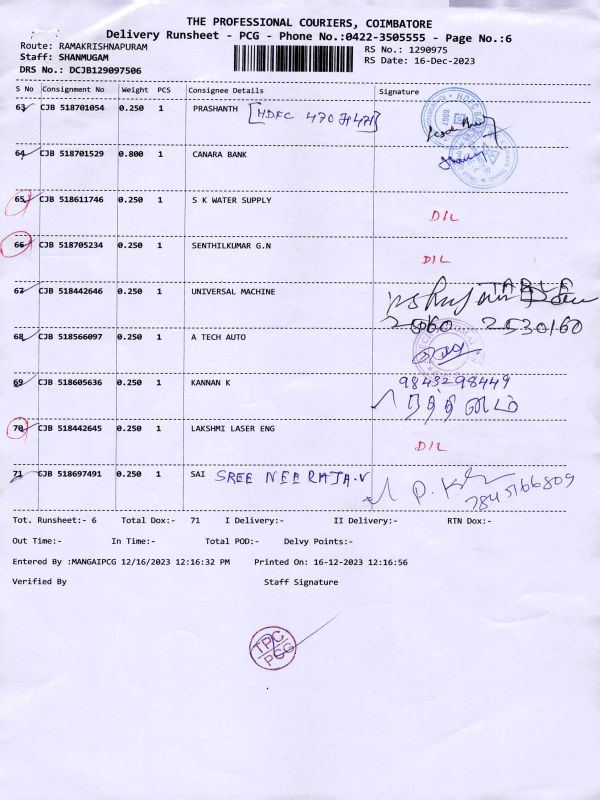 THE PROFESSIONAL COURIERS, COIMBATORE
Delivery Runsheet - PCG - Phone No.:0422-3505555 - Page No.:6
Route: RAMAKRISHNAPURAM
RS No.: 1290975
Staff: SHANMUGAM
RS Date: 16-Dec-2023
DRS No.: DCJB129097506
S No Consignment No Weight PCS Consignee Details Signature
63 CJB 518701054 0.250 1 PRASHANTH [HDFC
64 CJB 518701529 0.800 1 CANARA BANK
65 CJB 518611746 0.250 1 S K WATER SUPPLY D/L
66 CJB 518705234 0.250 1 SENTHILKUMAR G.N D/L
67 CJB 518442646 0.250 1 UNIVERSAL MACHINE
2530160
68 CJB 518566097 0.250 1 A TECH AUTO
69 CJB 518605636 0.250 1 KANNAN K 9843298449
70 CJB 518442645 0.250 1 LAKSHMI LASER ENG D/L
71 CJB 518697491 0.250 1 SAI SREE NEERAJA.V
7845166809
Tot. Runsheet:- 6 Total Dox:- 71 I Delivery:- II Delivery:- RTN Dox:-
Out Time:- In Time:- Total POD:- Delvy Points:-
Entered By :MANGAIPCG 12/16/2023 12:16:32 PM Printed On: 16-12-2023 12:16:56
Verified By Staff Signature
TPC
PCG